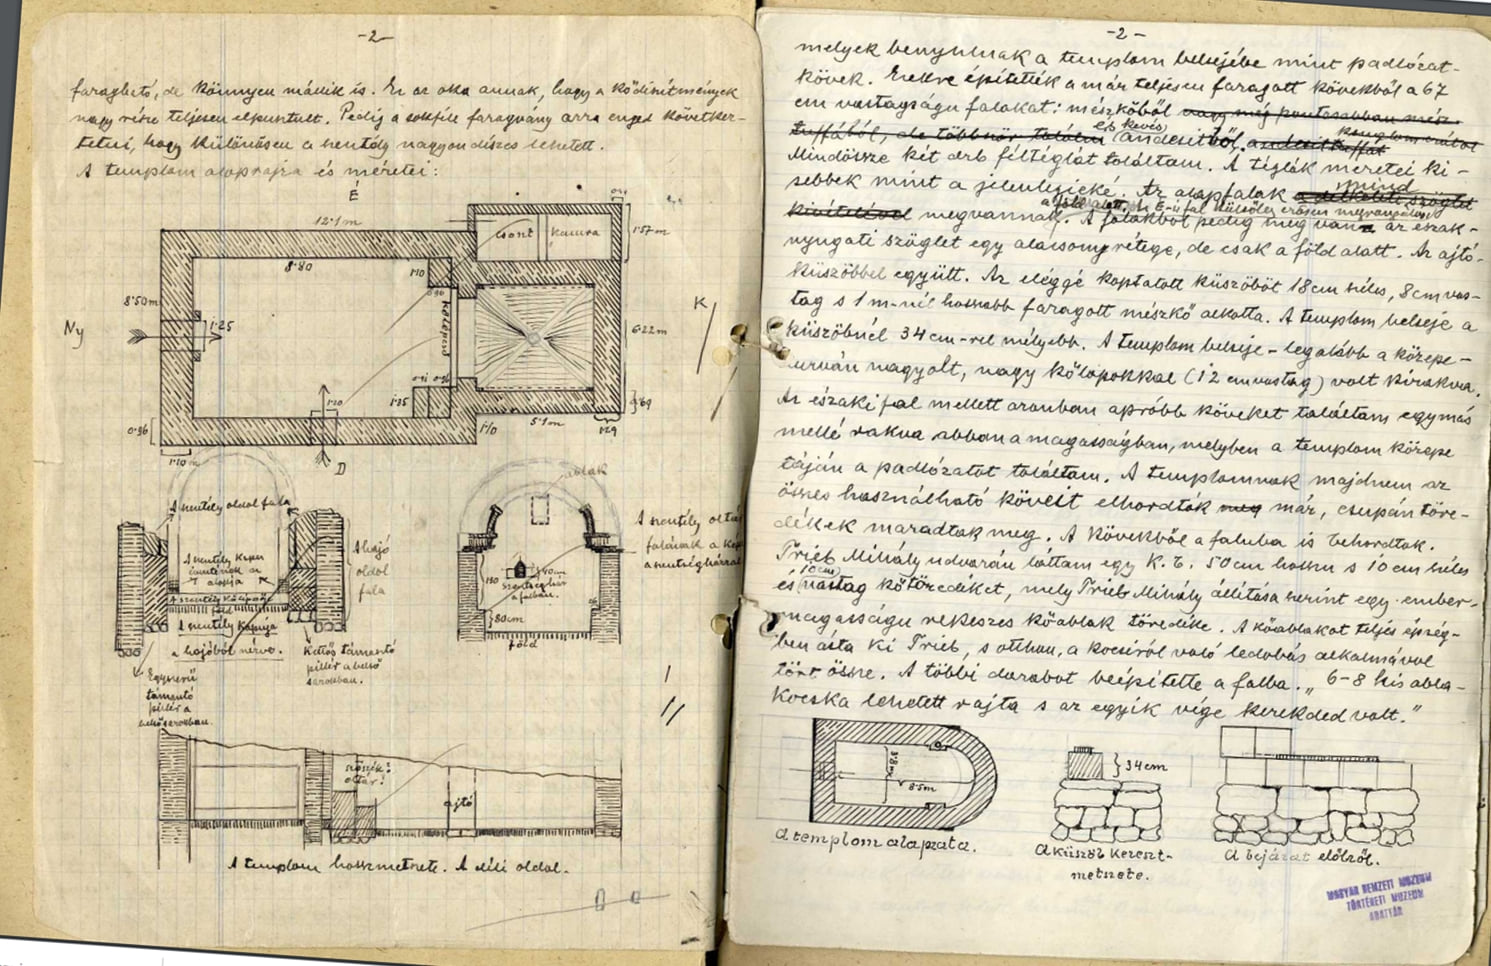 -2-
faragható, de könnyen mállik is. Ez az oka annak, hogy a kődíszítmények
nagy része teljesen elpusztult. Pedig a sokféle faragvány arra enged következ-
tetni, hogy különösen a szentély nagyon díszes lehetett.
A templom alaprajza és méretei:
É
12·1m
csont kamra
1·57m
8·80
1·10
0·96
8·50m
Ny
1·25
középső
K
6·22m
0·41 0·96
1·25
1·20
0·96
1·10
5·1m
·69
1·29
1·10m
D
ablak
A szentély oldal fala
A szentély kapu
alapja
A hajó
oldal
fala
A szentély küszöbe
föld
A szentély kapuja
a hajóból nézve.
Kettős támasztó
pillér a belső
sarokban.
Egyszerű
támasztó
pillér a
belső sarokban.
130
40cm
szentségház
a falban.
80cm
föld
A szentély
falának a
a szentségházzal
szószék?
oltár?
ajtó
A templom hosszmetszete. A déli oldal.
-2-
melyek benyúlnak a templom belsejébe mint padlózat-
kövek. Ezekre építették a már teljesen faragott kövekből a 67
cm vastagságu falakat: mészkőből vagy még pontosabban mész-
tuffából, de többször találni és kevés andezitből. andezittuffát
Mindössze két drb féltéglát találtam. A téglák méretei ki-
sebbek mint a jelenlegieké. Az alapfalak mind a délkeleti szöglet
kivételével megvannak. A falakból pedig még van az észak-
nyugati szöglet egy alacsony rétege, de csak a föld alatt. Az ajtó-
küszöbbel együtt. Az eléggé koptatott küszöböt 18cm széles, 8cm vas-
tag s 1 m-nél hosszabb faragott mészkő alkotta. A templom belseje a
küszöbnél 34 cm-rel mélyebb. A templom belseje - legalább a közepe -
durván nagyolt, nagy kőlapokkal (12 cm vastag) volt kirakva.
Az északi fal mellett azonban apróbb köveket találtam egymás
mellé rakva abban a magasságban, melyben a templom közepe
táján a padlózatot találtam. A templomnak majdnem az
összes használható köveit elhordták meg már, csupán töre-
dékek maradtak meg. A kövekből a faluba is behordtak.
Trieb Mihály udvarán láttam egy K. b. 50cm hosszu s 10cm széles
és 10cm vastag kőtöredéket, mely Trieb Mihály állítása szerint egy ember-
magasságu rekeszes kőablak töredéke. A kőablakot teljes épség-
ben ásta ki Trieb, s otthon, a kocsiról való ledobás alkalmával
tört össze. A többi darabot beépítette a falba. „6-8 kis abla-
kocska lehetett rajta s az egyik vége kerekded volt."
3·8m
8·5m
34cm
A templom alapzata.
A küszöb kereszt-
metszete.
A bejárat elölről.
MAGYAR NEMZETI MUZEUM
TÖRTÉNETI MUZEUM
ADATTÁR